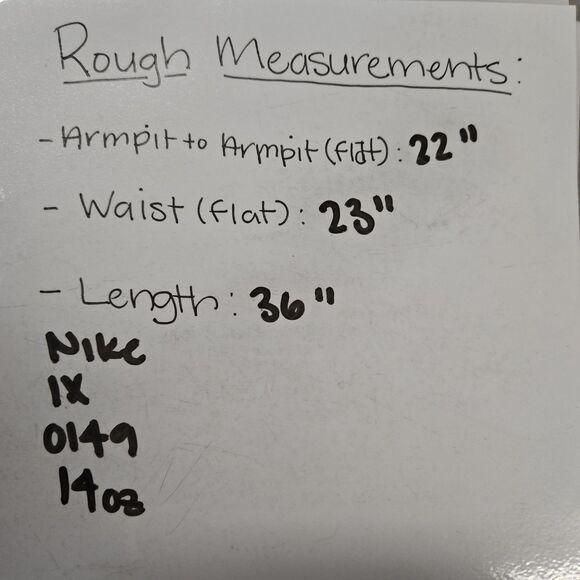 Rough Measurements:
- Armpit to Armpit (flat): 22"
- Waist (flat): 23"
- Length: 36"
NIKE
1X
0149
14oz